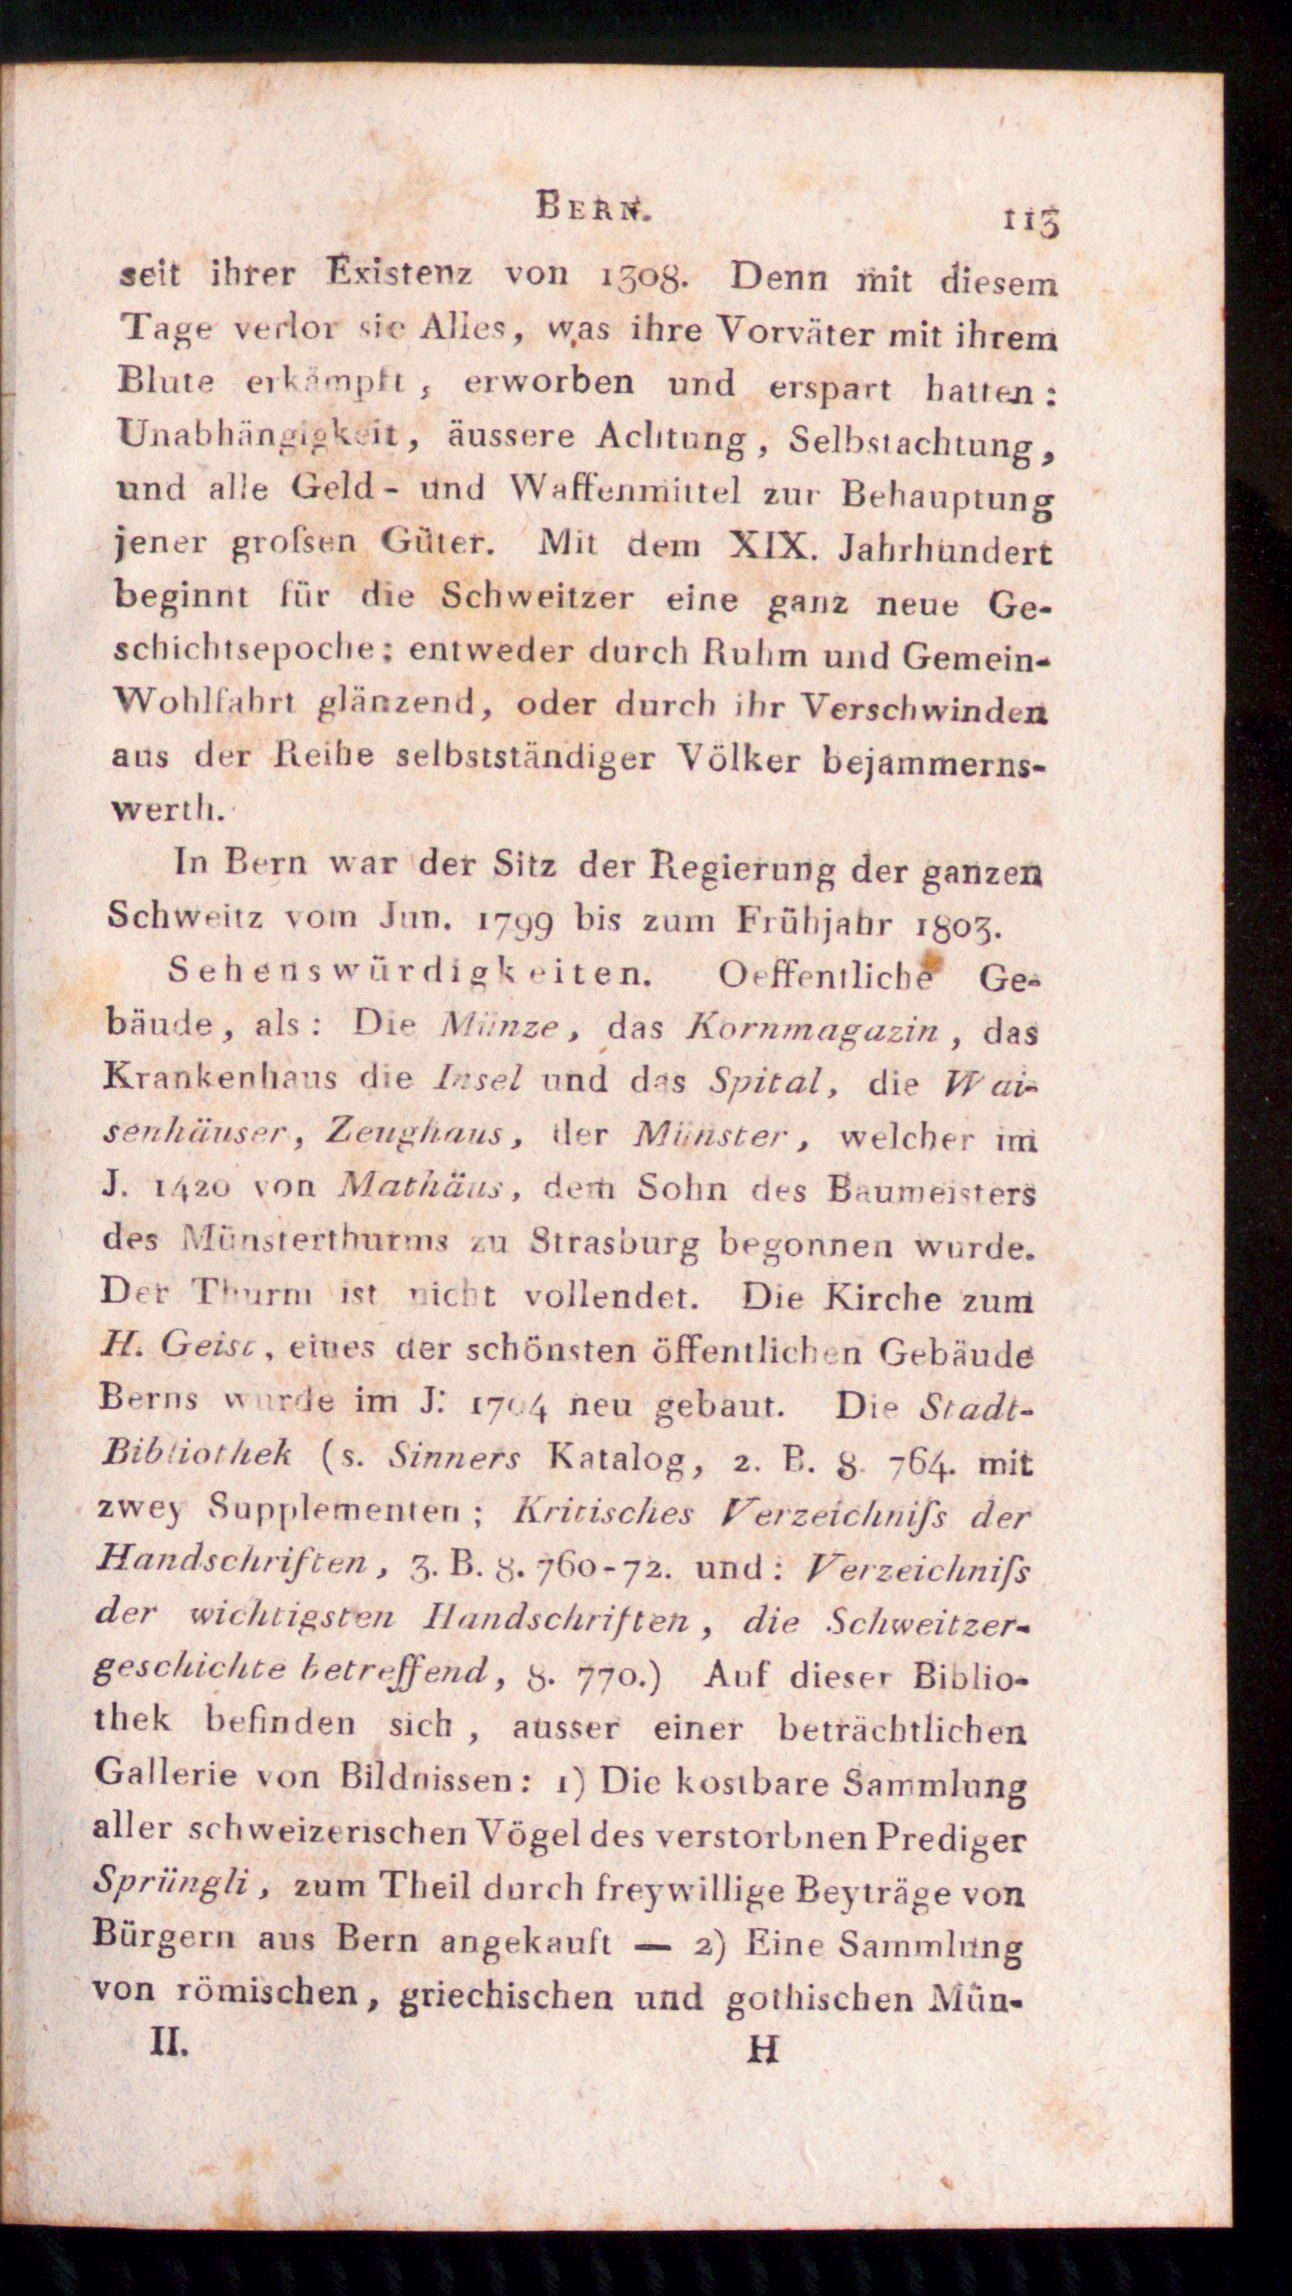 BERN. 113
seit ihrer Existenz von 1308. Denn mit diesem
Tage verlor sie Alles, was ihre Vorväter mit ihrem
Blute erkämpft, erworben und erspart hatten:
Unabhängigkeit, äussere Achtung, Selbstachtung,
und alle Geld- und Waffenmittel zur Behauptung
jener groſsen Güter. Mit dem XIX. Jahrhundert
beginnt für die Schweitzer eine ganz neue Ge-
schichtsepoche; entweder durch Ruhm und Gemein-
Wohlfahrt glänzend, oder durch ihr Verschwinden
aus der Reihe selbstständiger Völker bejammerns-
werth.
In Bern war der Sitz der Regierung der ganzen
Schweitz vom Jun. 1799 bis zum Frühjahr 1803.
Sehenswürdigkeiten. Oeffentliche Ge-
bäude, als: Die Münze, das Kornmagazin, das
Krankenhaus die Insel und das Spital, die Wai-
senhäuser, Zeughaus, der Münster, welcher im
J. 1420 von Mathäus, dem Sohn des Baumeisters
des Münsterthurms zu Strasburg begonnen wurde.
Der Thurm ist nicht vollendet. Die Kirche zum
H. Geist, eines der schönsten öffentlichen Gebäude
Berns wurde im J. 1704 neu gebaut. Die Stadt-
Bibliothek (s. Sinners Katalog, 2. B. 8. 764. mit
zwey Supplementen; Kritisches Verzeichniſs der
Handschriften, 3. B. 8. 760-72. und: Verzeichniſs
der wichtigsten Handschriften, die Schweitzer-
geschichte betreffend, 8. 770.) Auf dieser Biblio-
thek befinden sich, ausser einer beträchtlichen
Gallerie von Bildnissen: 1) Die kostbare Sammlung
aller schweizerischen Vögel des verstorbnen Prediger
Sprüngli, zum Theil durch freywillige Beyträge von
Bürgern aus Bern angekauft — 2) Eine Sammlung
von römischen, griechischen und gothischen Mün-
II. H